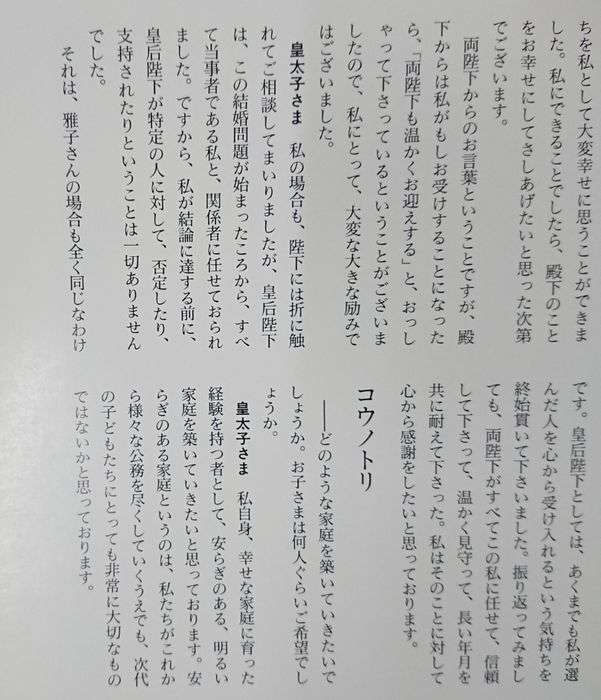 ちを私として大変幸せに思うことができま
した。私にできることでしたら、殿下のこと
をお幸せにしてさしあげたいと思った次第
でございます。
両陛下からのお言葉ということですが、殿
下からは私がもしお受けすることになった
ら、「両陛下も温かくお迎えする」と、おっし
ゃって下さっているということがございま
したので、私にとって、大変な大きな励みで
はございました。
皇太子さま 私の場合も、陛下には折に触
れてご相談してまいりましたが、皇后陛下
は、この結婚問題が始まったころから、すべ
て当事者である私と、関係者に任せておられ
ました。ですから、私が結論に達する前に、
皇后陛下が特定の人に対して、否定したり、
支持されたりということは一切ありません
でした。
それは、雅子さんの場合も全く同じなわけ
です。皇后陛下としては、あくまでも私が選
んだ人を心から受け入れるという気持ちを
終始貫いて下さいました。振り返ってみまし
ても、両陛下がすべてこの私に任せて、信頼
して下さって、温かく見守って、長い年月を
共に耐えて下さった。私はそのことに対して
心から感謝をしたいと思っております。
コウノトリ
──どのような家庭を築いていきたいで
しょうか。お子さまは何人ぐらいご希望でし
ょうか。
皇太子さま 私自身、幸せな家庭に育った
経験を持つ者として、安らぎのある、明るい
家庭を築いていきたいと思っております。安
らぎのある家庭というのは、私たちがこれか
ら様々な公務を尽くしていくうえでも、次代
の子どもたちにとっても非常に大切なもの
ではないかと思っております。